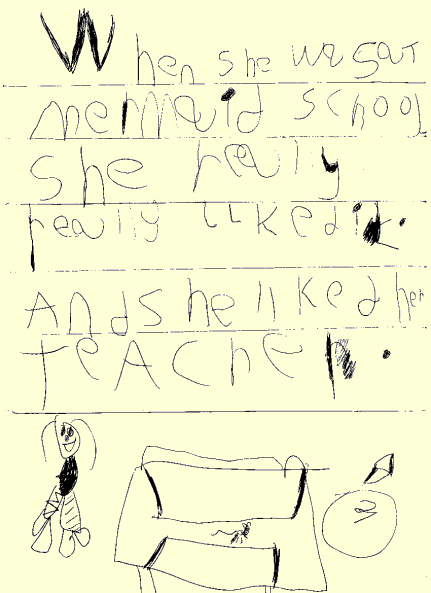 When she was at
mermaid school
she really
really liked it.
And she liked her
teacher.